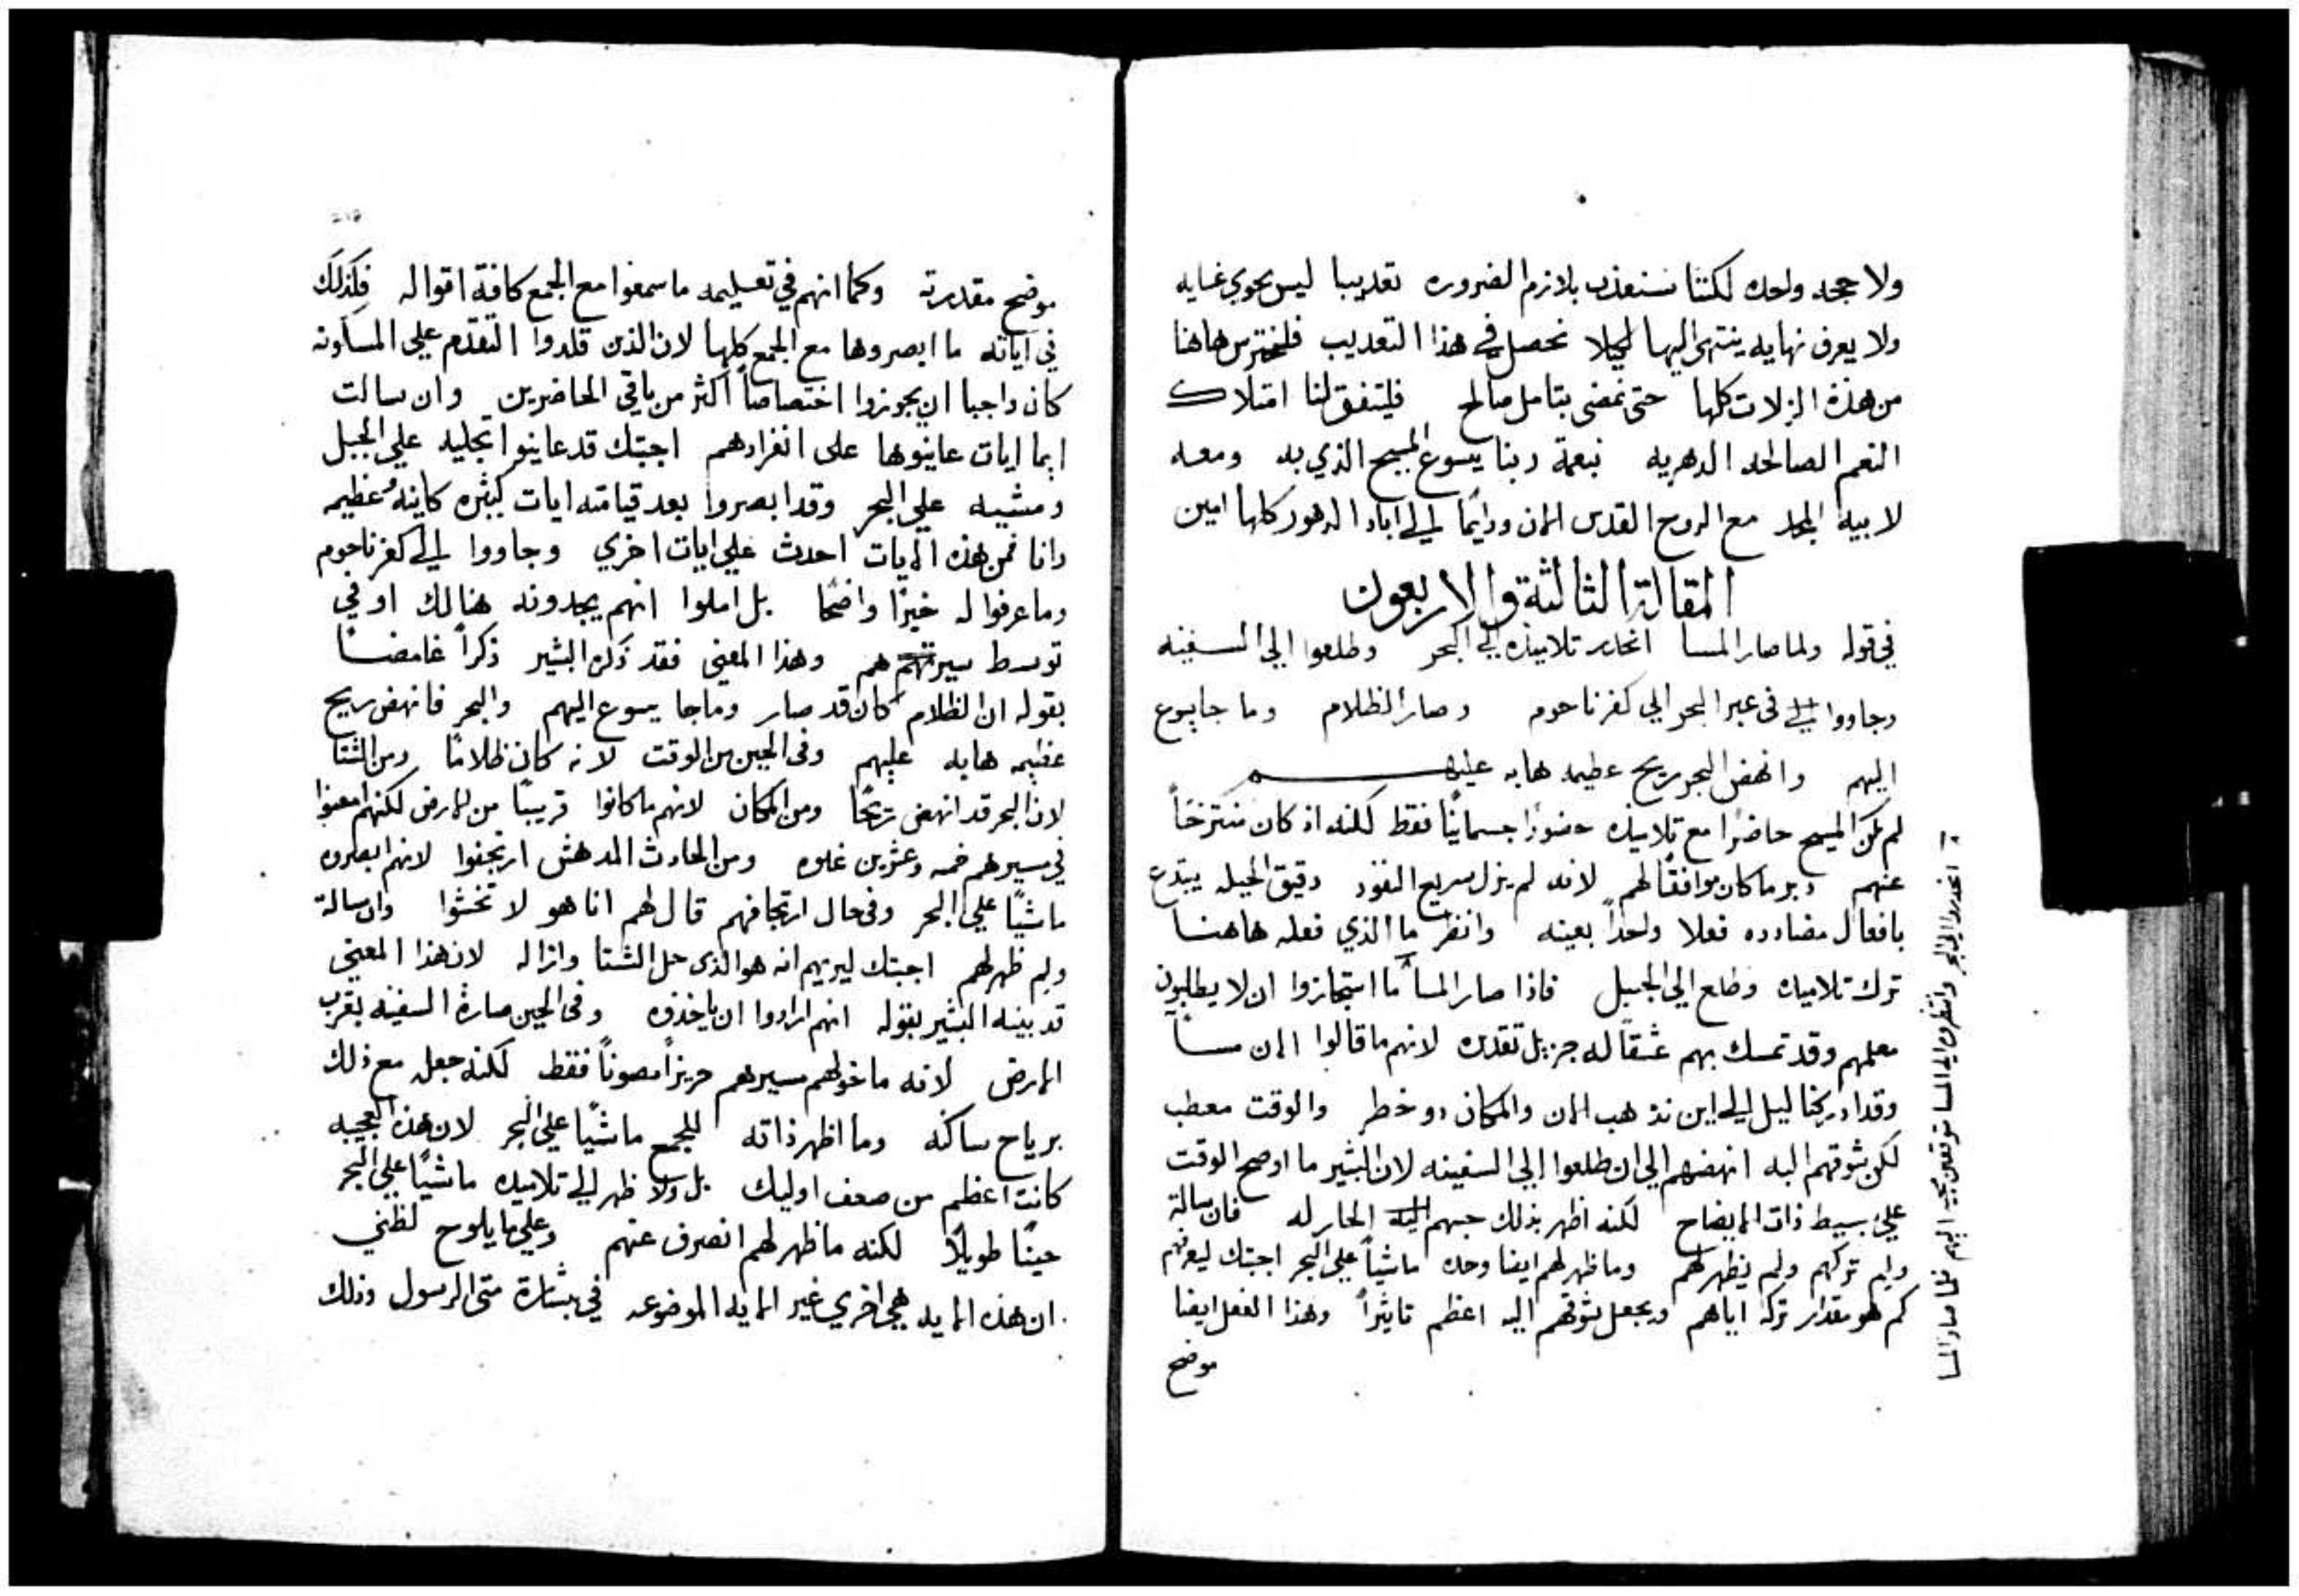 ولا جحد واحده لكننا سنعذب بلازم الضروره تعديبا ليس يحوي غايه
ولا يعرف نهايه ينتهي اليها لكيلا نحصل في هذا التعديب فلنحترس هاهنا
من هذة الزلات كلها حتى نمضى بتامل صالح فليتفق لنا امتلاك
النعم الصالحه الدهريه بنعمة ربنا يسوع المسيح الذي به ومعه
لابيه المجد مع الروح القدس الان ودايًما الي اباد الدهور كلها امين
المقالة الثالثة والاربعون
في قوله ولما صار المسا انحدر تلاميذه الي البحر وطلعوا الي السفينه
وجاووا الي في عبر البحر الي كفرناحوم وصار الظلام وما جا يسوع
اليهم وانهض البحر ريح عظيمه هابه عليهم
لم يكن المسيح حاضرًا مع تلاميذه حضورًا جسمانيًا فقط لكنه اذ كان منتزحًا
عنهم وبر ما كان موافقًا لهم لانه لم يزل سريع النفوذ دقيق الحيله يبتدع
بافعال مضادده فعلا واحداً بعينه وانظر ما الذي فعله هاهنا
ترك تلاميذه وطلع الي الجبل فاذا صار المسا ما استجازوا ان لا يطلبون
معلمهم وقد تمسك بهم عشقًا له جزيل تقديره لانهم ما قالوا الان مساً
وقد ادركنا ليل الي اين نذهب الان والمكان ذو خطر والوقت معطب
لكن شوقهم اليه انهضهم الي ان طلعوا الي السفينه لان البشير ما اوضح الوقت
علي بسيط ذات الايضاح لكنه اظهر بذلك حبهم اليه الحار له فان سالة
ولم تركهم ولم يظهر لهم وما ظهر لهم ايضا وحده ماشياً علي البحر اجبتك ليعرفهم
كم هو مقدار تركه اياهم ويجعل شوقهم اليه اعظم تاثيراً وهذا الفعل ايضا
موضح
انحدروا الي البحر وانتظروه الي المسا متوقعين مجيه اليهم فلما صار المسا
موضح مقدرته وكما انهم في تعليمه ما سمعوا مع الجمع كافة اقواله فكذلك
في آياته ما ابصروها مع الجمع كلها لان الذين قلدوا التقدم علي المساونه
كان واجبا ان يجوزوا اختصاصاً اكثر من باقي الحاضرين وان سالت
ايما ايات عاينوها على انفرادهم اجبتك قد عاينوا تجليه علي الجبل
ومشيه علي البحر وقد ابصروا بعد قيامته ايات كثيره كاينه وعظيمه
وانا فمن هذه الايات احدث علي ايات اخري وجاووا الي كفرناحوم
وما عرفوا له خبرًا واضحًا بل املوا انهم يجدونه هنالك او في
توسط سيرهم وهذا المعني فقد ذكره البشير ذكراً غامضاً
بقوله ان الظلام كان قد صار وما جا يسوع اليهم والبحر فانهض ريح
عظيمه هابه عليهم وفي الحين من الوقت لانه كان ظلامًا ومن الشتا
لان البحر قد انهض ريحًا ومن المكان لانهم ما كانوا قريبًا من الارض لكنهم امعنوا
في سيرهم خمسه وعشرين غلوه ومن الحادث المدهش ارتجفوا لانهم ابصروه
ماشيًا علي البحر وفي حال ارتجافهم قال لهم انا هو لا تخشوا وان سالة
ولم ظهر لهم اجبتك ليريهم انه هو الذي حل الشتا وازاله لان هذا المعني
قد بينه البشير بقوله انهم ارادوا ان ياخذوه وفي الحين صارة السفينه بقرب
الارض لانه ما خولهم سيرهم حريزاً مصوناً فقط لكنه جعله مع ذلك
برياح ساكنه وما اظهر ذاته للجمع ماشيًا علي البحر لان هذه العجيبه
كانت اعظم من ضعف اوليك بل ولا ظهر الي تلاميذه ماشيًا علي البحر
حينًا طويلًا لكنه ما ظهر لهم انصرف عنهم وعلي ما يلوح لظني
ان هذه الايه هي اخري غير الايه الموضوعه في بشارة متي الرسول وذلك